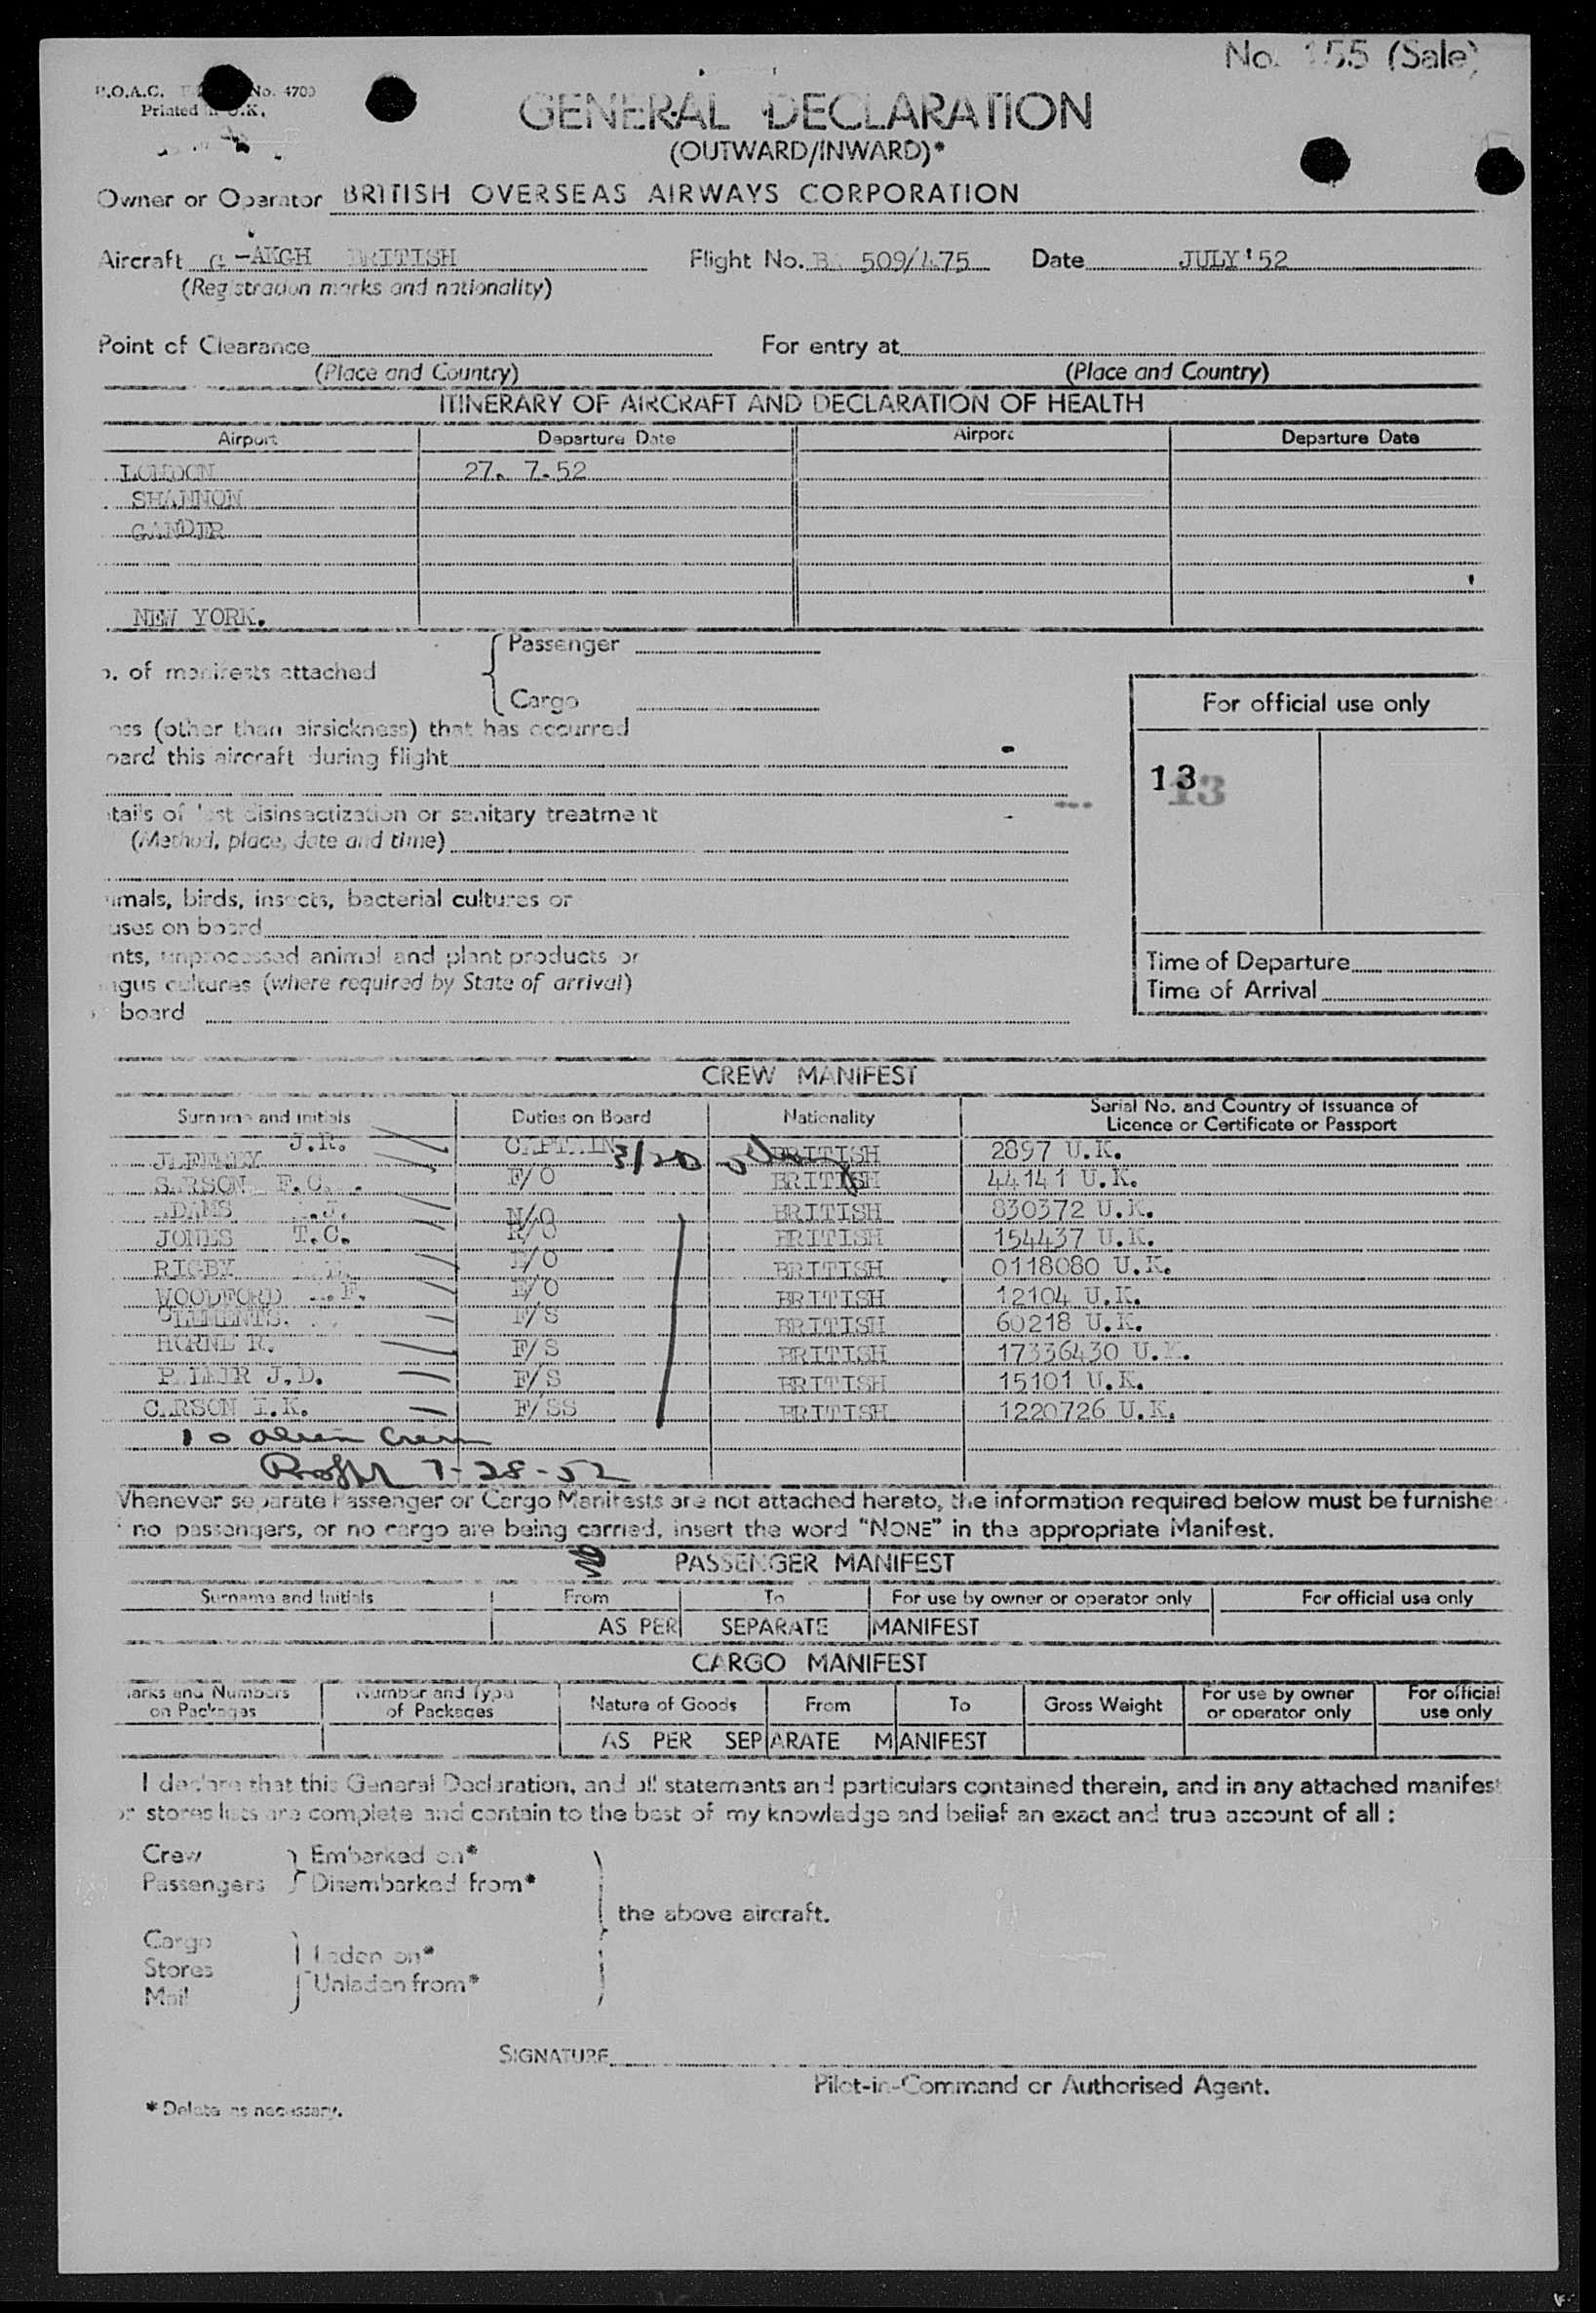 No. 155 (Sale)
B.O.A.C. No. 4700
Printed in U.K.
GENERAL DECLARATION
(OUTWARD/INWARD)*
Owner or Operator BRITISH OVERSEAS AIRWAYS CORPORATION
Aircraft G-AKGH BRITISH Flight No. BA 509/475 Date JULY'52
(Registration marks and nationality)
Point of Clearance For entry at
(Place and Country) (Place and Country)
ITINERARY OF AIRCRAFT AND DECLARATION OF HEALTH
Airport Departure Date Airport Departure Date
LONDON 27. 7.52
SHANNON
GANDER
NEW YORK.
Passenger
o. of manifests attached
Cargo
ess (other than airsickness) that has occurred
oard this aircraft during flight
For official use only
13 13
tails of last disinsectization or sanitary treatment
(Method, place, date and time)
imals, birds, insects, bacterial cultures or
uses on board
nts, unprocessed animal and plant products or
ngus cultures (where required by State of arrival)
board
Time of Departure
Time of Arrival
CREW MANIFEST
Surname and initials Duties on Board Nationality Serial No. and Country of Issuance of
Licence or Certificate or Passport
J.R. CAPTAIN BRITISH 2897 U.K.
SARSON F.C. F/O BRITISH 44141 U.K.
ADAMS .J. N/O BRITISH 830372 U.K.
JONES T.C. R/O BRITISH 154437 U.K.
RIGBY E/O BRITISH 0118080 U.K.
WOODFORD .F. E/O BRITISH 12104 U.K.
CLEMENTS. F/S BRITISH 60218 U.K.
HORNE R. F/S BRITISH 17336430 U.K.
PALMER J.D. F/S BRITISH 15101 U.K.
CARSON I.K. F/SS BRITISH 1220726 U.K.
10 alien Crew
7-28-52
Whenever separate Passenger or Cargo Manifests are not attached hereto, the information required below must be furnishe
no passengers, or no cargo are being carried, insert the word "NONE" in the appropriate Manifest.
PASSENGER MANIFEST
Surname and Initials From To For use by owner or operator only For official use only
AS PER SEPARATE MANIFEST
CARGO MANIFEST
arks and Numbers on Packages Number and Type of Packages Nature of Goods From To Gross Weight For use by owner or operator only For official use only
AS PER SEPARATE MANIFEST
I declare that this General Declaration, and all statements and particulars contained therein, and in any attached manifest
or stores lists are complete and contain to the best of my knowledge and belief an exact and true account of all :
Crew Embarked on*
Passengers Disembarked from*
the above aircraft.
Cargo
Stores Laden on*
Mail Unladen from*
SIGNATURE
Pilot-in-Command or Authorised Agent.
* Delete as necessary.